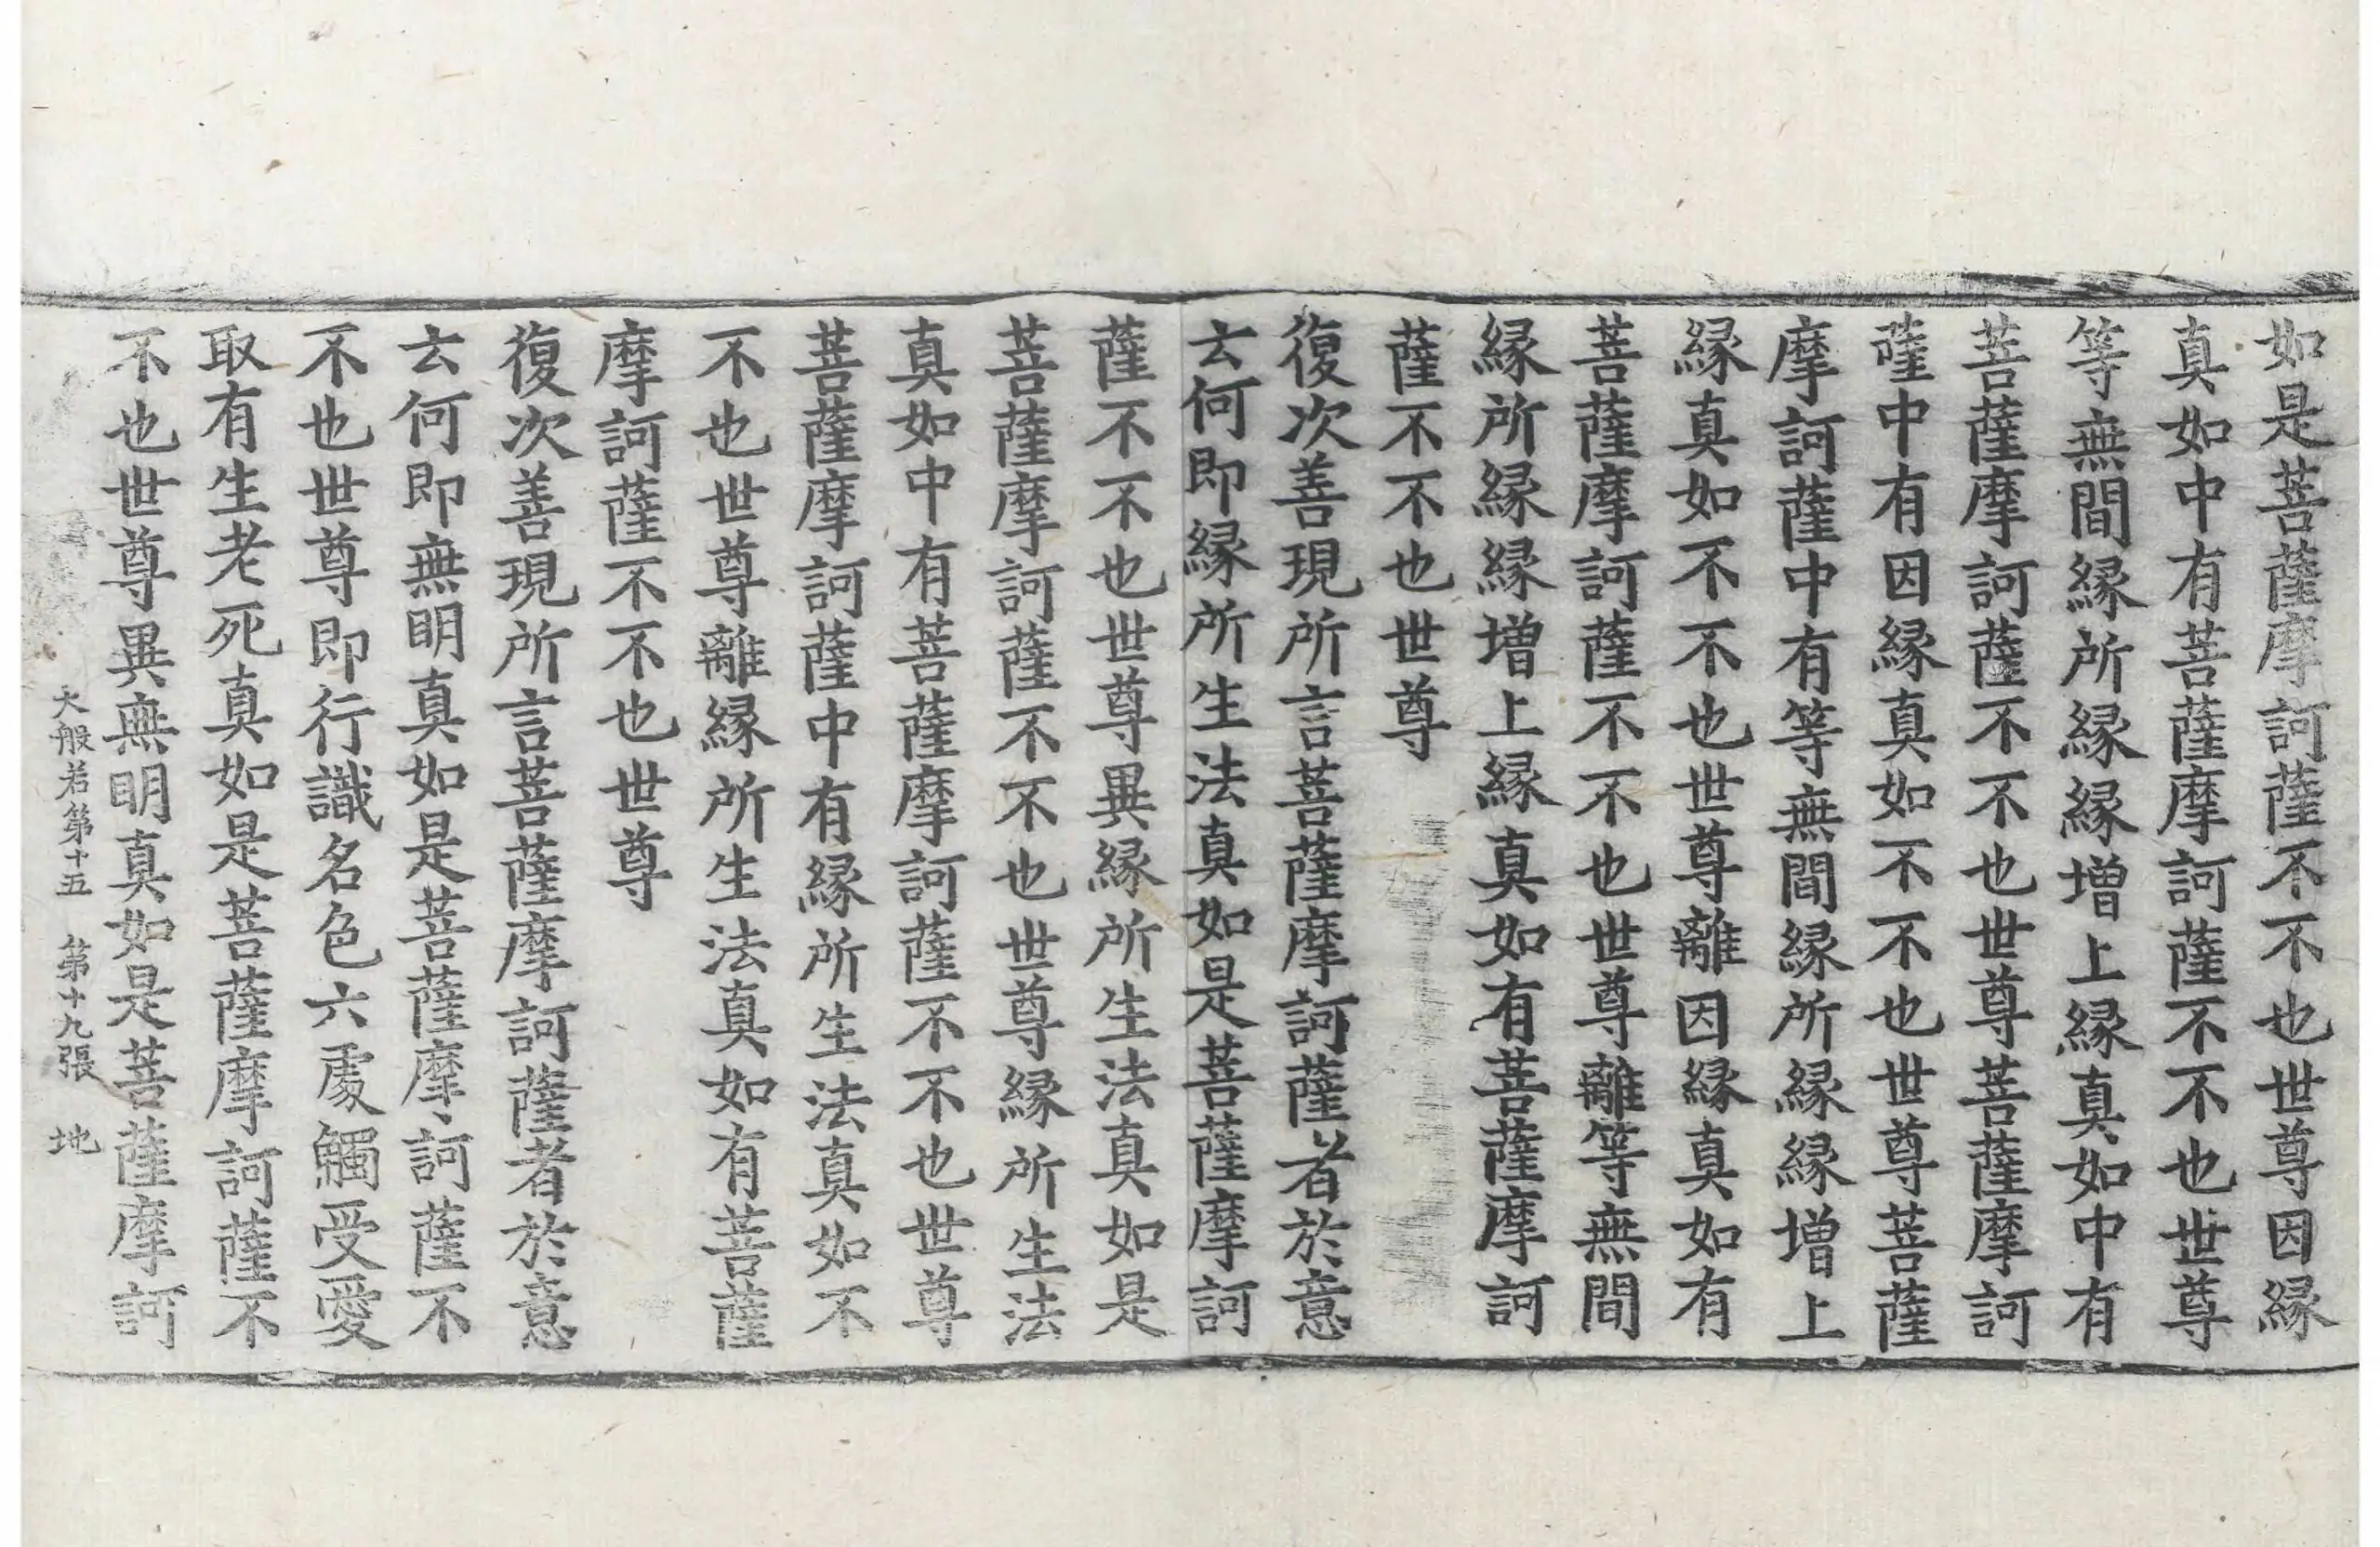 如是菩薩摩訶薩不不也世尊因縁
真如中有菩薩摩訶薩不不也世尊
等無間縁所縁縁増上縁真如中有
菩薩摩訶薩不不也世尊菩薩摩訶
薩中有因縁真如不不也世尊菩薩
摩訶薩中有等無間縁所縁縁増上
縁真如不不也世尊離因縁真如有
菩薩摩訶薩不不也世尊離等無間
縁所縁縁増上縁真如有菩薩摩訶
薩不不也世尊
復次善現所言菩薩摩訶薩者於意
云何即縁所生法真如是菩薩摩訶
薩不不也世尊異縁所生法真如是
菩薩摩訶薩不不也世尊縁所生法
真如中有菩薩摩訶薩不不也世尊
菩薩摩訶薩中有縁所生法真如不
不也世尊離縁所生法真如有菩薩
摩訶薩不不也世尊
復次善現所言菩薩摩訶薩者於意
云何即無明真如是菩薩摩訶薩不
不也世尊即行識名色六處觸受愛
取有生老死真如是菩薩摩訶薩不
不也世尊異無明真如是菩薩摩訶
大般若第十五 第十九張 地